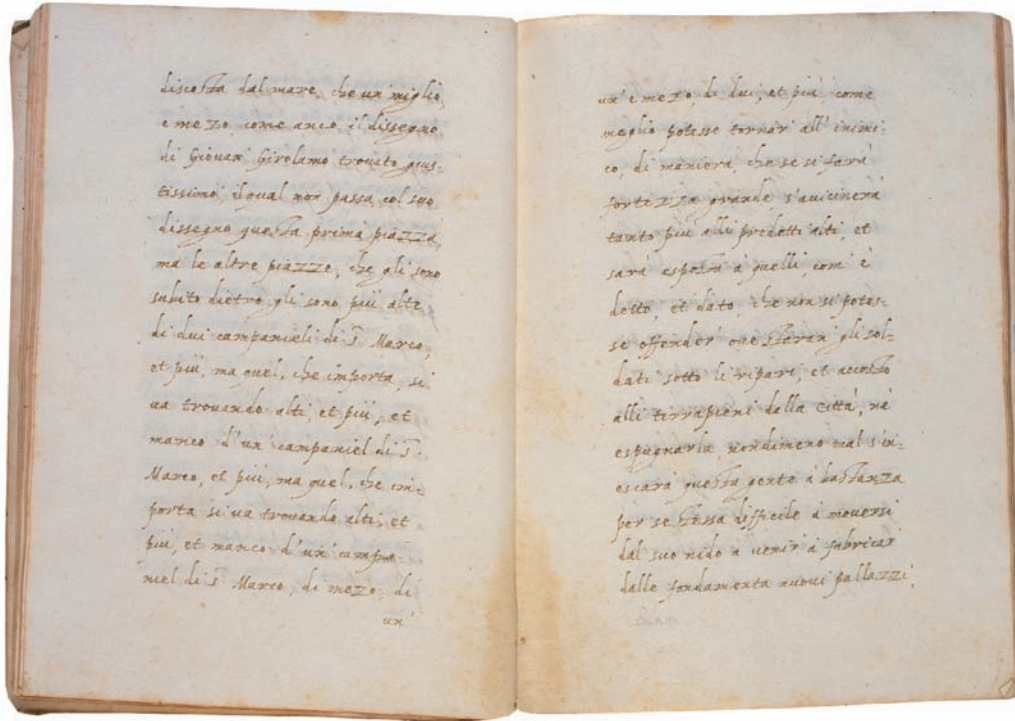 discosta dal mare, che un miglio,
e mezo come anco, il dissegno
di Giovan' Girolamo trovato gius-
tissimo, il qual non passa col suo
dissegno questa prima piazza,
ma le altre piazze, che gli sono
subito dietro, gli sono più alte
di dui campanieli di S. Marco,
et più, ma quel, che importa, si
va trovando alti, et più, et
manco d'un' campaniel di S.
Marco, et più, ma quel, che im-
porta si va trovando alti, et
più, et manco d'un' campa-
niel di S. Marco, di mezo, di
un'
un' e mezo, di dui, et più, come
meglio potesse tornar' all' inimi-
co, di maniera, che se si farà
fortezza grande s'avicinerà
tanto più alli predetti alti, et
sarà esposta à quelli, com' è
detto, et dato, che non si potes-
se offender' ove staran' gli sol-
dati sotto li ripari, et accosto
alli terrapieni della città, nè
espugnarla, nondimeno mal s'in-
escarà questa gente à bastanza
per se stessa difficile à moversi
dal suo nido a venir' à fabricar'
dalle fondamenta nuovi pallazzi,